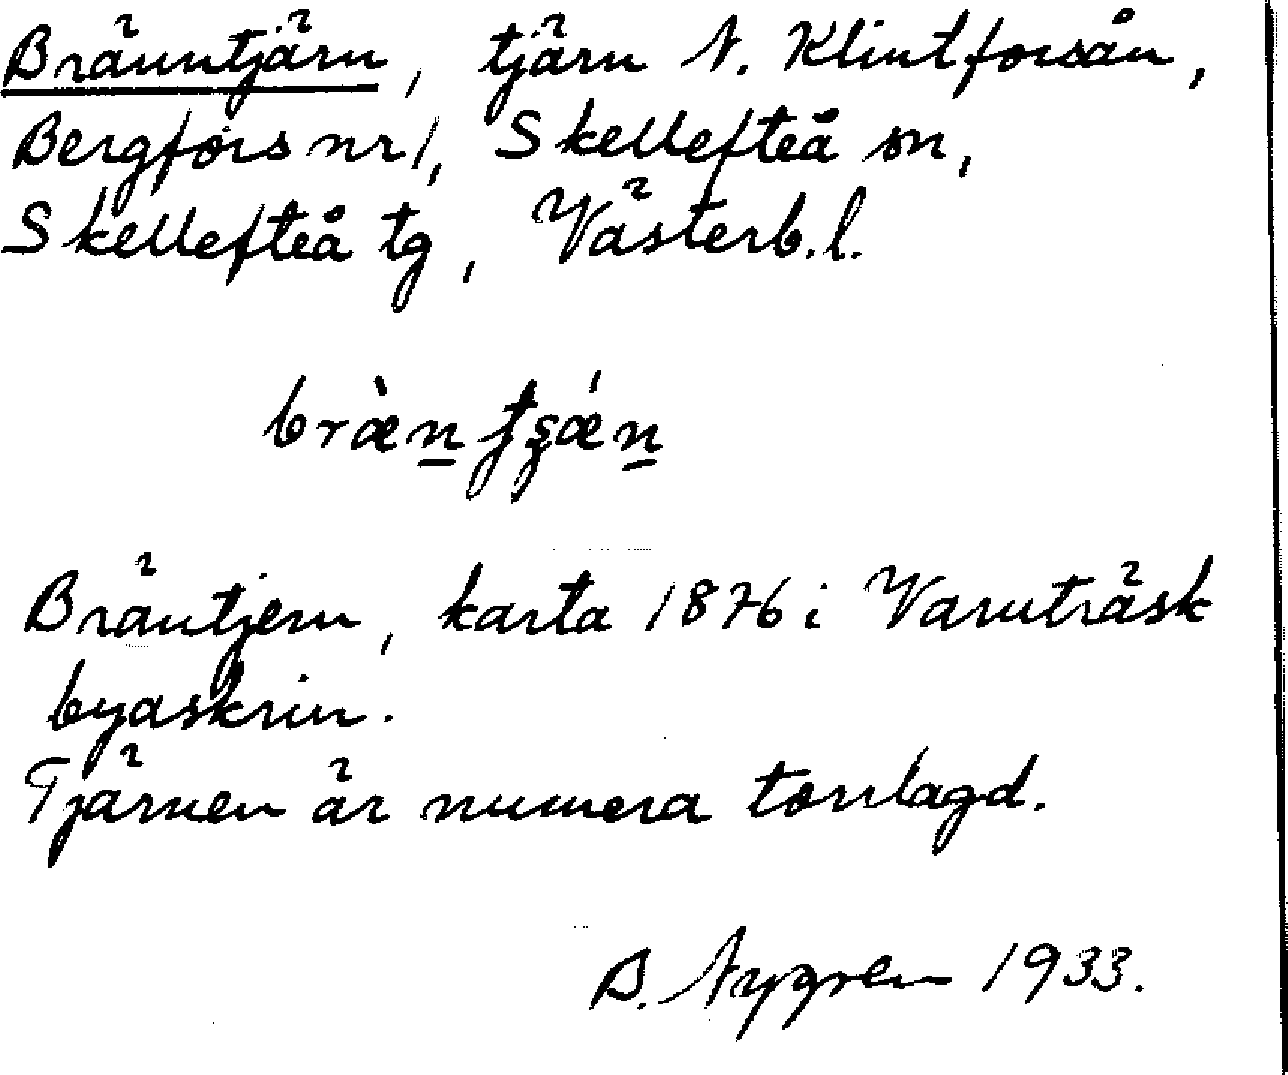 Bränntjärn, tjärn N. Klintforsån,
Bergfors nr 1, Skellefteå sn,
Skellefteå tg, Västerb.l.
Bräntjern, karta 1876 i Varuträsk
byaskrin.
Tjärnen är numera torrlagd.
B. Nygren 1933.